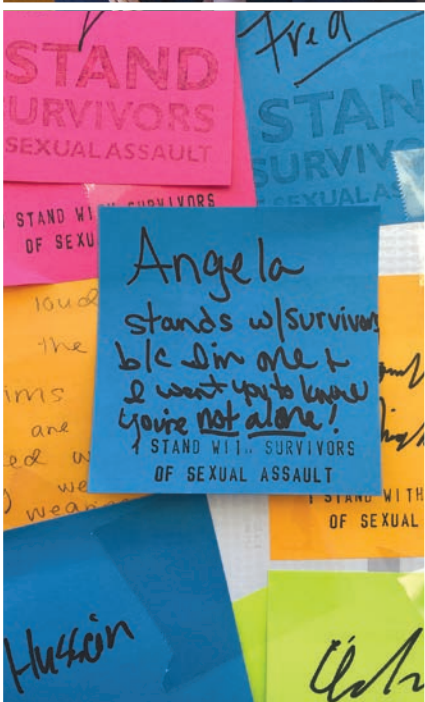 STAND
URVIVORS
SEXUAL ASSAULT
Fred
STAN
SURVIV
SEXUAL AS
STAND WITH SURVIVORS
OF SEXU
Angela
stands w/survivors
b/c I'm one +
I want you to know
you're not alone!
I STAND WITH SURVIVORS
OF SEXUAL ASSAULT
loud
the
ims
are
ed w
we
weap
I STAND WITH
OF SEXUAL
Hussein